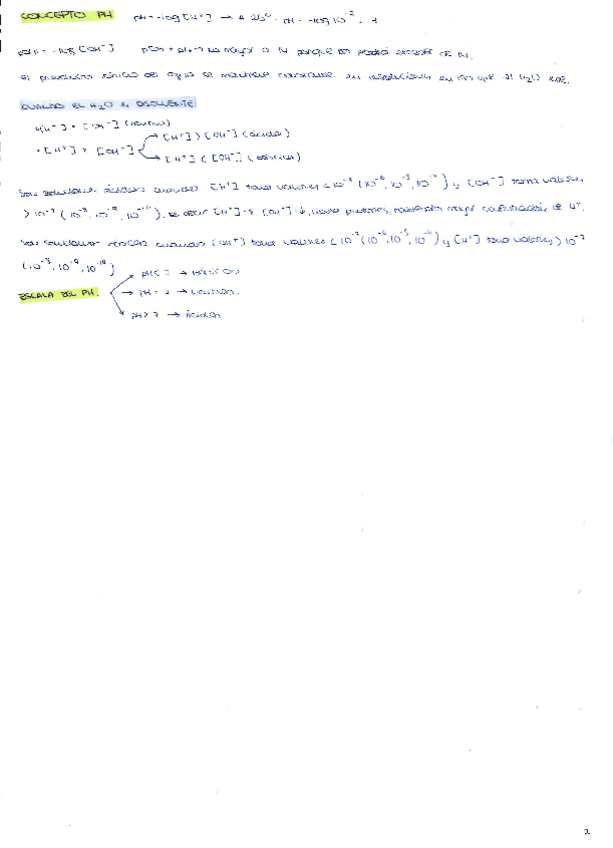 CONCEPTO PH pH = -log [H⁺] → A 25º. pH = -log 10⁻⁷ = 7
pOH = -log [OH⁻] pOH + pH → no mayor a 14 porque no podrá exceder de 14.
El producto iónico del agua se mantiene constante en disoluciones en las que el H₂O
CUANDO EL H₂O ES DISOLVENTE
[H⁺] = [OH⁻] (neutro)
• [H⁺] ≠ [OH⁻] → [H⁺] > [OH⁻] (ácida)
→ [H⁺] < [OH⁻] (básica)
Son soluciones ácidas cuando [H⁺] toma valores < 10⁻⁷ (10⁻⁶, 10⁻⁵, 10⁻⁴) y [OH⁻] toma valores
> 10⁻⁷ (10⁻⁸, 10⁻⁹, 10⁻¹⁰), es decir [H⁺] ↑ [OH⁻] ↓, mayor concentración de H⁺.
Son soluciones básicas cuando [OH⁻] toma valores < 10⁻⁷ (10⁻⁶, 10⁻⁵, 10⁻⁴) y [H⁺] toma valores > 10⁻⁷
(10⁻⁸, 10⁻⁹, 10⁻¹⁰)
ESCALA DEL PH. pH < 7 → básicas
→ pH = 7 → neutras.
pH > 7 → ácidas
2